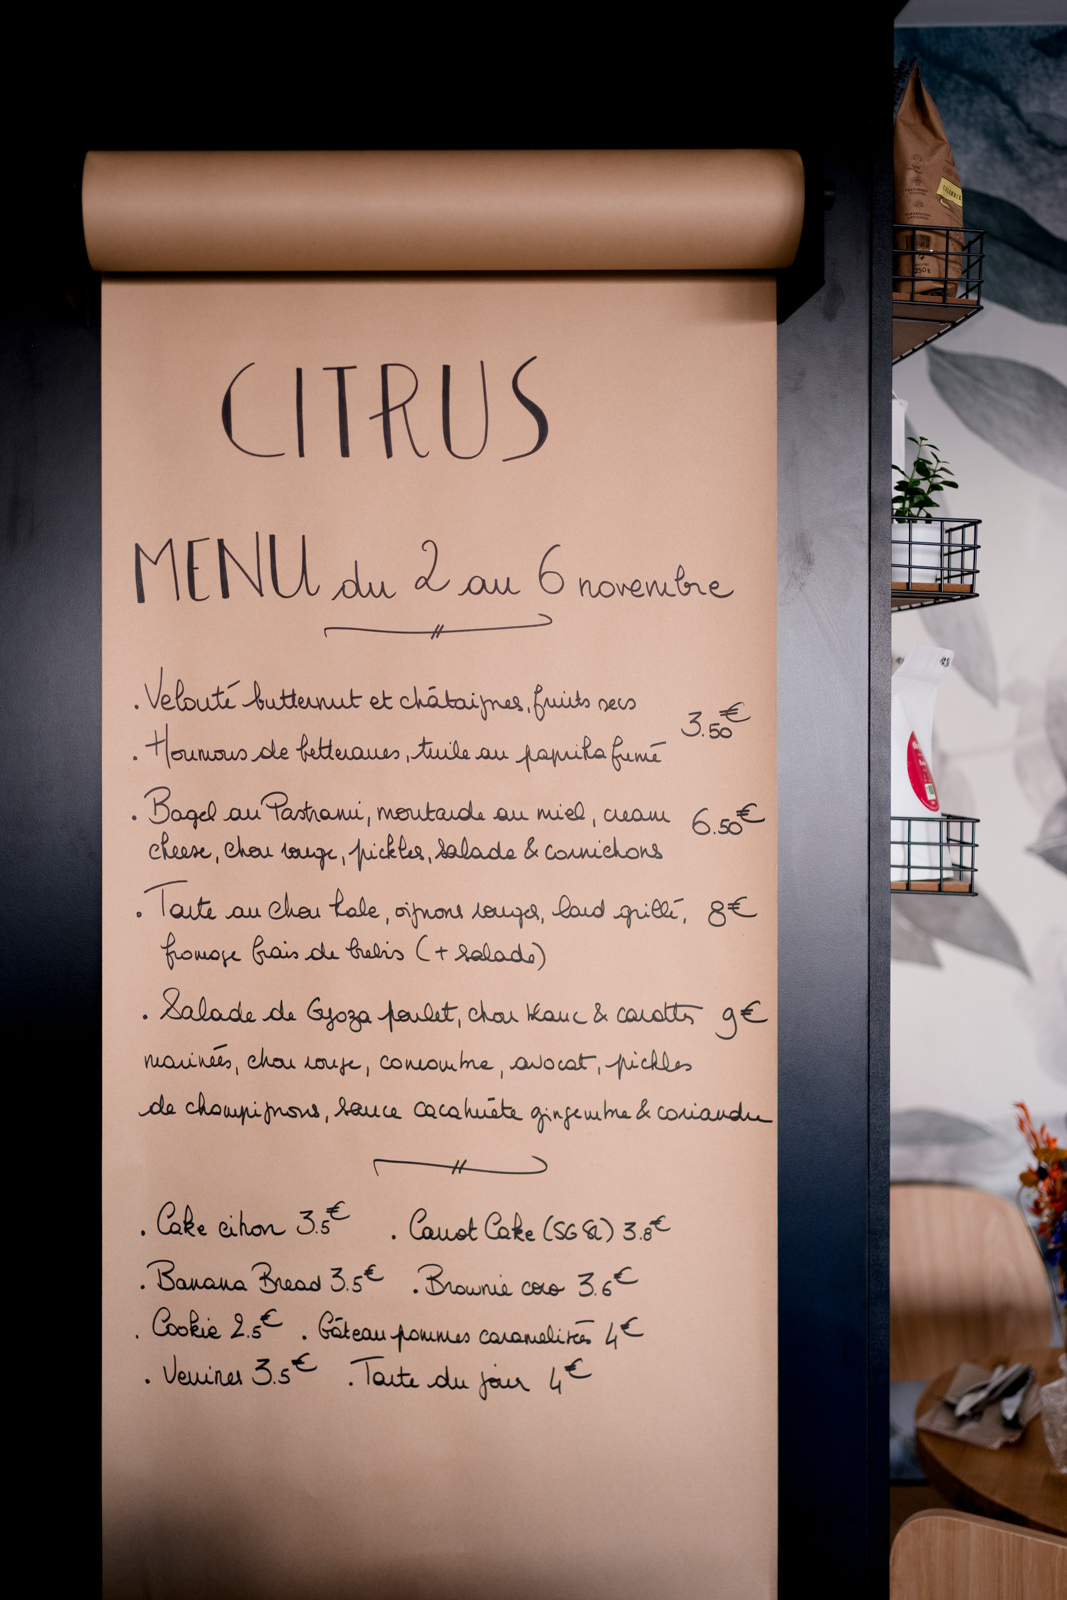 CITRUS
MENU du 2 au 6 novembre
. Velouté butternut et châtaignes, fruits secs
3.50€
. Houmous de betteraves, tuile au paprika fumé
. Bagel au Pastrami, moutarde au miel, cream 6.50€
cheese, chou rouge, pickles, salade & cornichons
. Tarte au chou kale, oignons rouges, lard grillé, 8€
fromage frais de brebis (+ salade)
. Salade de Gyoza poulet, chou blanc & carottes 9€
marinées, chou rouge, concombre, avocat, pickles
de champignons, sauce cacahuète gingembre & coriandre
. Cake citron 3.5€ . Carrot Cake (SG SL) 3.8€
. Banana Bread 3.5€ . Brownie coco 3.6€
. Cookie 2.5€ . Gâteau pommes caramélisées 4€
. Verrines 3.5€ . Tarte du jour 4€
250g